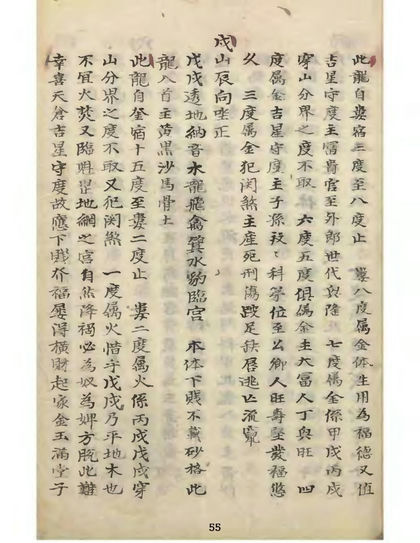 此龍自婁宿三度至八度止　婁八度属金体生用為福德又值
吉星守度主富貴官至外郎世代興隆　七度属金係甲戌丙戌
穿山分界之度不取　六度五度俱属金主大富人丁興旺　四
度属金吉星守度主子孫 科第位至公卿人旺壽 發福悠
久　三度属金犯関煞主産死刑傷跛足缺唇逃亡流竄
戌山辰向坐正
戊戌透地納音木龍飛禽箕水豹臨宫　本体下賤不載砂格此
龍入首主黄黑沙馬骨土
此龍自奎宿十五度至婁二度止　婁二度属火係丙戌戊戌穿
山分界之度不取又犯関煞　一度属火惜乎戊戌乃平地木也
不宜火焚又臨 罡地網之宫自然降禍必為奴為婢方脱此難
幸喜天倉吉星守度故應下賤 福屡得横財起家金玉滿堂子
55